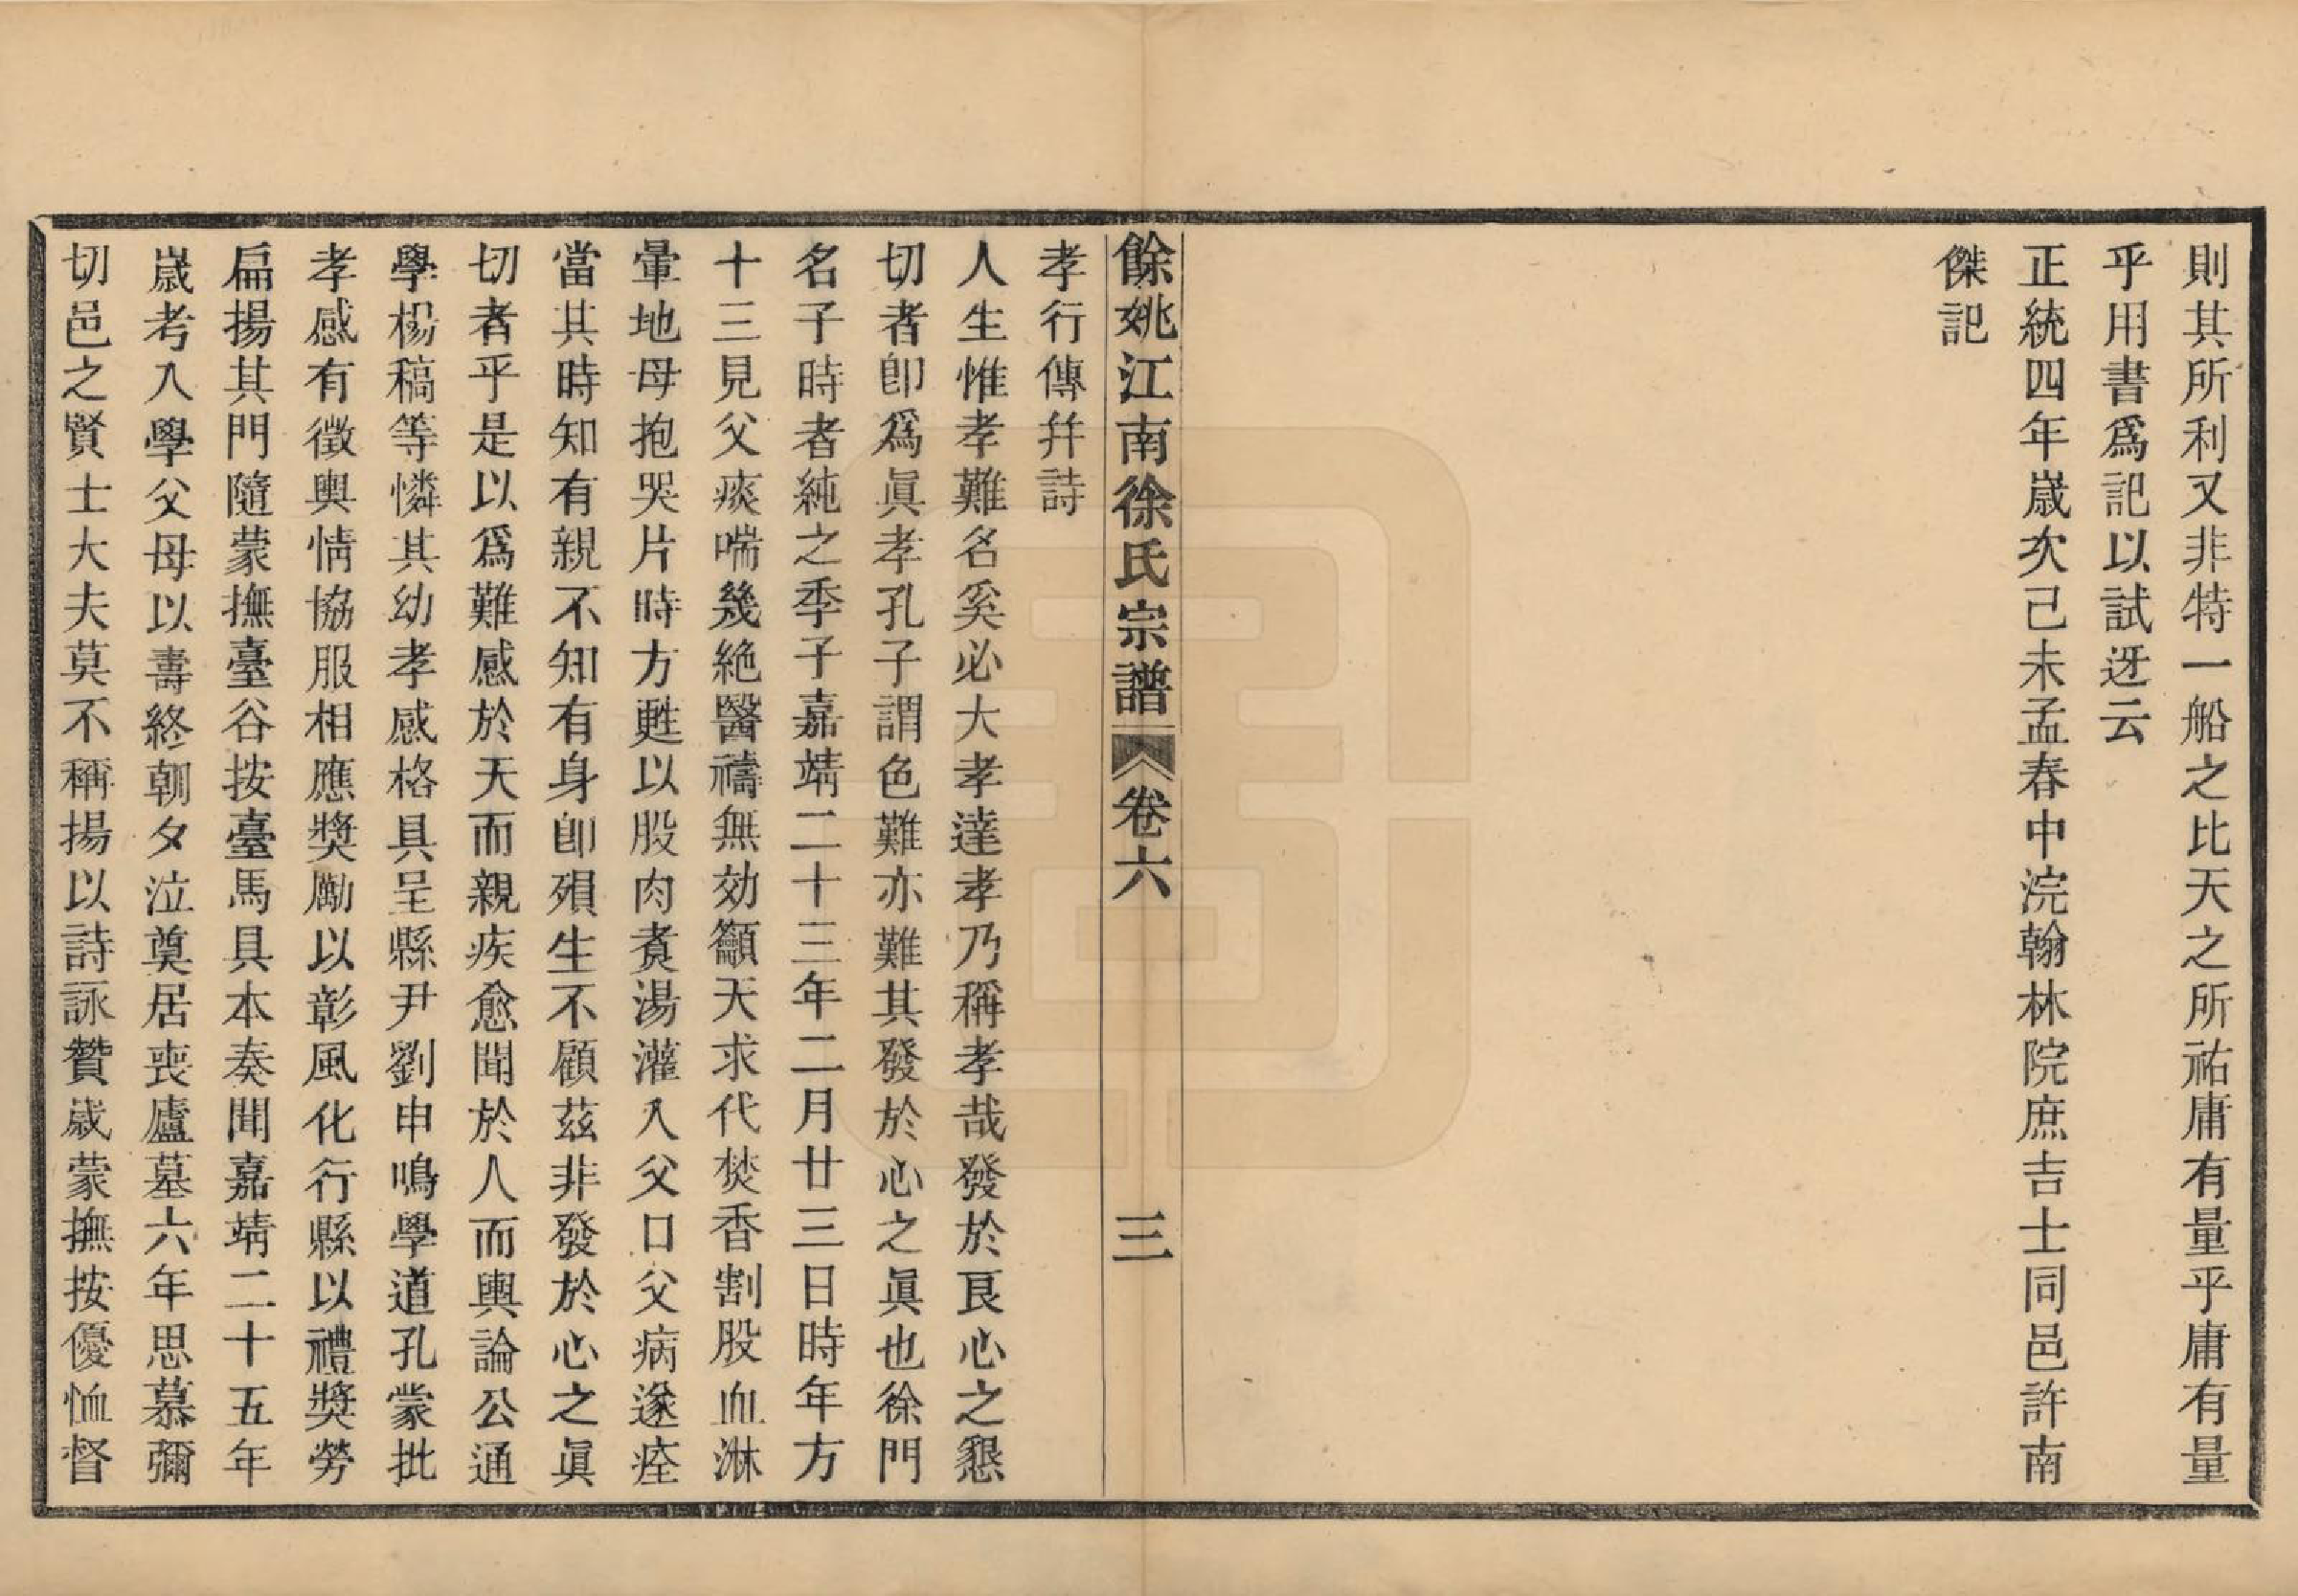 則其所利又非特一船之比天之所祐庸有量乎庸有量
乎用書爲記以試迓云
正統四年歲次己未孟春中浣翰林院庶吉士同邑許南
傑記
餘姚江南徐氏宗譜 卷六 三
孝行傳幷詩
人生惟孝難名奚必大孝達孝乃稱孝哉發於良心之懇
切者卽爲眞孝孔子謂色難亦難其發於心之眞也徐門
名子時者純之季子嘉靖二十三年二月廿三日時年方
十三見父痰喘幾絶醫禱無効籲天求代焚香割股血淋
暈地母抱哭片時方甦以股肉煑湯灌入父口父病遂痊
當其時知有親不知有身卽殞生不顧茲非發於心之眞
切者乎是以爲難感於天而親疾愈聞於人而輿論公通
學楊稿等憐其幼孝感格具呈縣尹劉申鳴學道孔蒙批
孝感有徵輿情協服相應奬勵以彰風化行縣以禮奬勞
扁揚其門隨蒙撫臺谷按臺馬具本奏聞嘉靖二十五年
歲考入學父母以壽終朝夕泣奠居喪廬墓六年思慕彌
切邑之賢士大夫莫不稱揚以詩詠贊歲蒙撫按優恤督